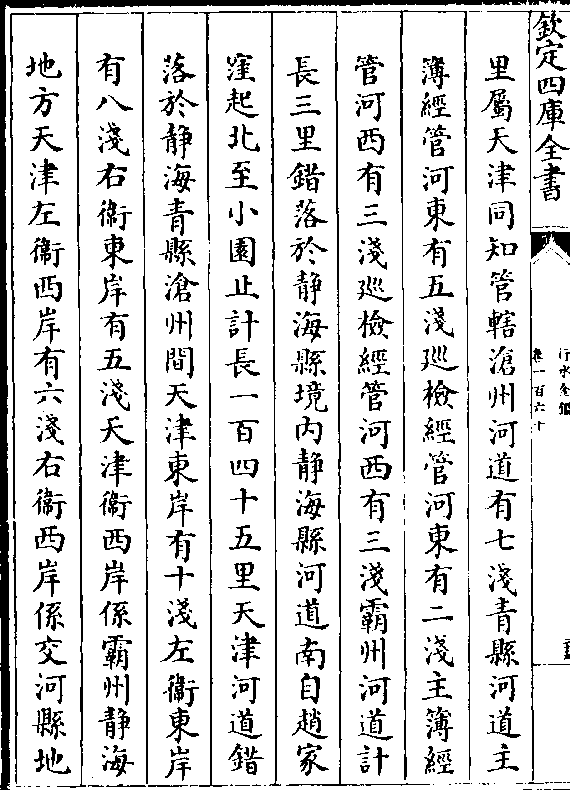 欽定四庫全書
行水金鑑
卷一百六十
里屬天津同知管轄滄州河道有七淺青縣河道主
簿經管河東有五淺巡檢經管河東有二淺主簿經
管河西有三淺巡檢經管河西有三淺霸州河道計
長三里錯落於静海縣境内静海縣河道南自趙家
窪起北至小園止計長一百四十五里天津河道錯
落於静海青縣滄州間天津東岸有十淺左衞東岸
有八淺右衞東岸有五淺天津衞西岸係霸州静海
地方天津左衞西岸有六淺右衞西岸係交河縣地